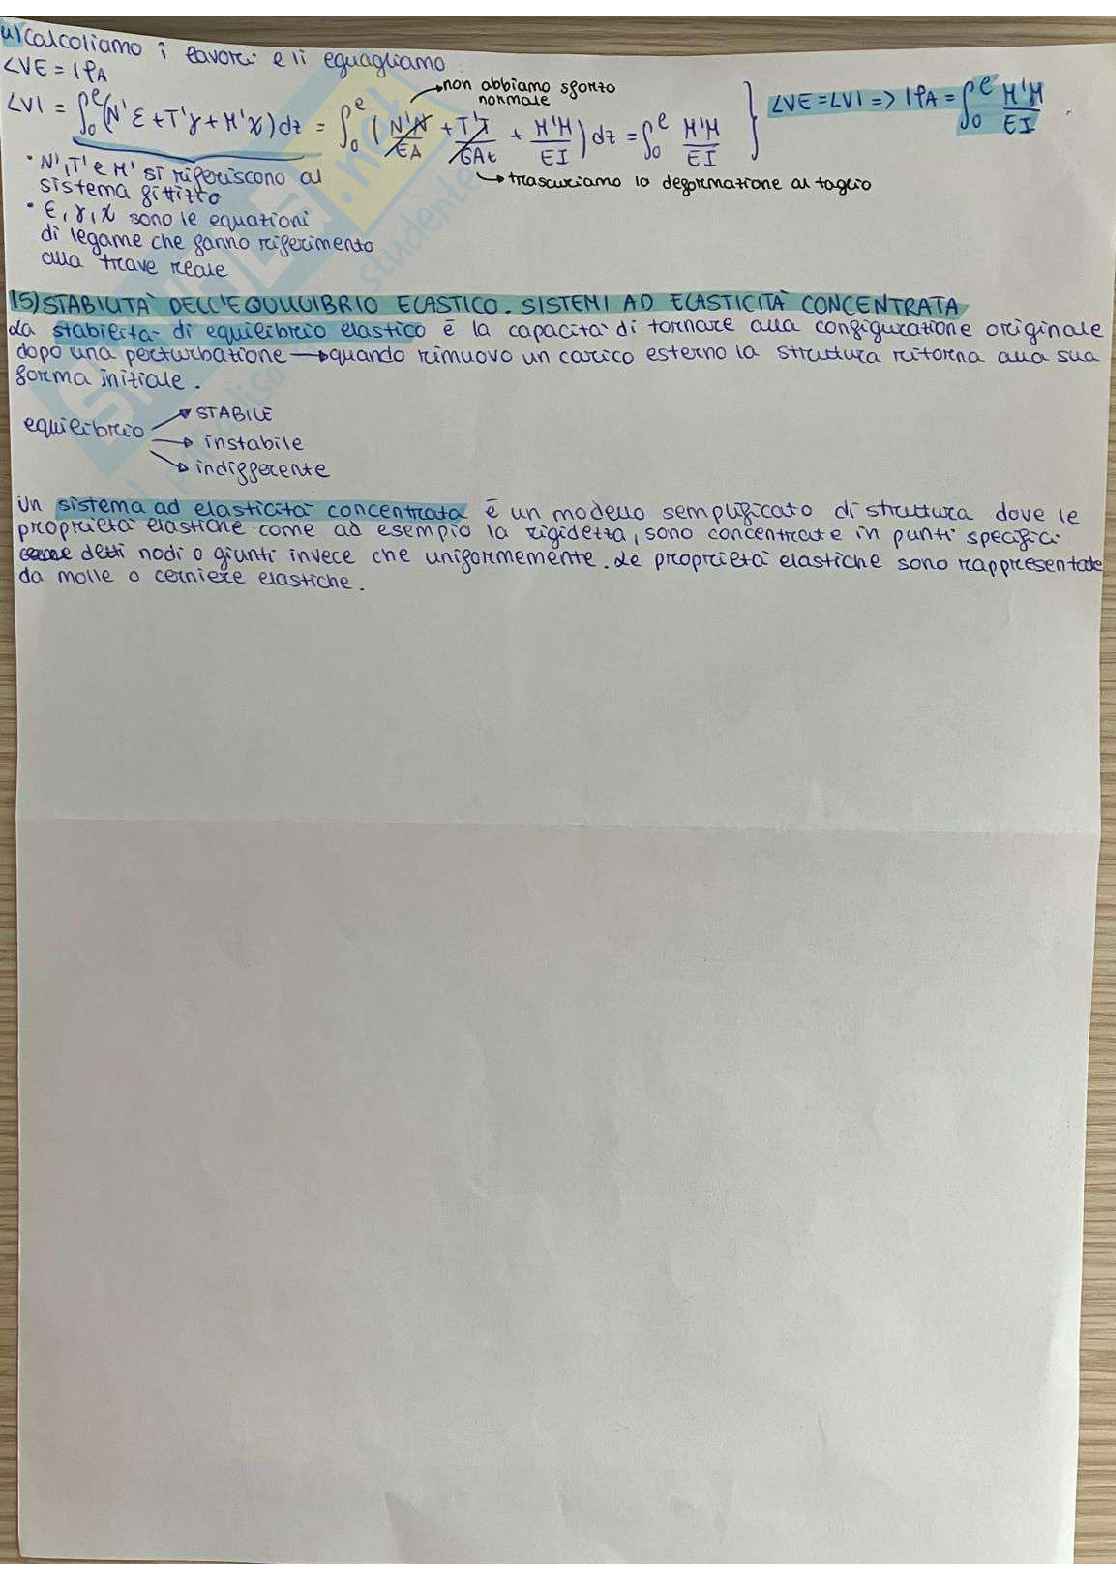 4) Calcoliamo i lavori e li eguagliamo
LVE = 1φA
LVI = ∫₀ˡ (N'ε + T'γ + M'χ) dz = ∫₀ˡ ( N'N/EA + T'T/GAt + M'M/EI ) dz = ∫₀ˡ M'M/EI } LVE = LVI => 1φA = ∫₀ˡ M'M/EI
non abbiamo sforzo normale
trascuriamo la deformazione al taglio
• N', T' e M' si riferiscono al
sistema fittizio
• ε, γ, χ sono le equazioni
di legame che fanno riferimento
alla trave reale
15) STABILITÀ DELL'EQUILIBRIO ELASTICO. SISTEMI AD ELASTICITÀ CONCENTRATA
La stabilità di equilibrio elastico è la capacità di tornare alla configurazione originale
dopo una perturbazione → quando rimuovo un carico esterno la struttura ritorna alla sua
forma iniziale.
equilibrio → STABILE
→ instabile
→ indifferente
Un sistema ad elasticità concentrata è un modello semplificato di struttura dove le
proprietà elastiche come ad esempio la rigidezza, sono concentrate in punti specifici
come detti nodi o giunti invece che uniformemente. Le proprietà elastiche sono rappresentate
da molle o cerniere elastiche.